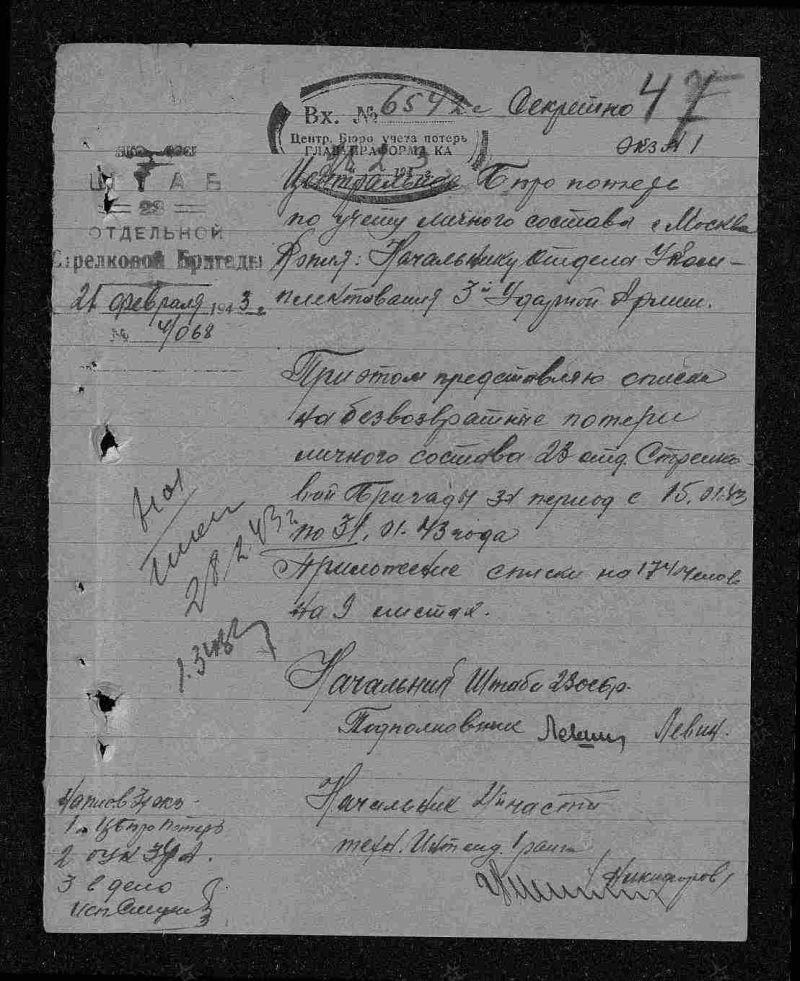 Вх. № 6542с Секретно 47
Центр. Бюро учета потерь
ГЛАВУПРАФОРМ КА
экз №1
ШТАБ
23
ОТДЕЛЬНОЙ
Стрелковой Бригады
21 февраля 1943 г.
№ 4/068
Центральное Б про потерь
по учету личного состава г. Москва
Копия: Начальнику отдела Уком-
плектования 3й Ударной Армии.
При этом представляю списки
на безвозвратные потери
личного состава 23 отд. Стрелко-
вой Бригады за период с 15.01.43
по 31.01.43 года
Приложение списки на 174 челов
на 9 листах.
28/2.43г
Начальник Штаба 23 осбр.
Подполковник Левин.
Начальник 4й части
техн. Интенд. 1 ранга
Никифоров
Напис 3 экз.
1. ЦБ про Потерь
2 оук 3уА.
3 в дело